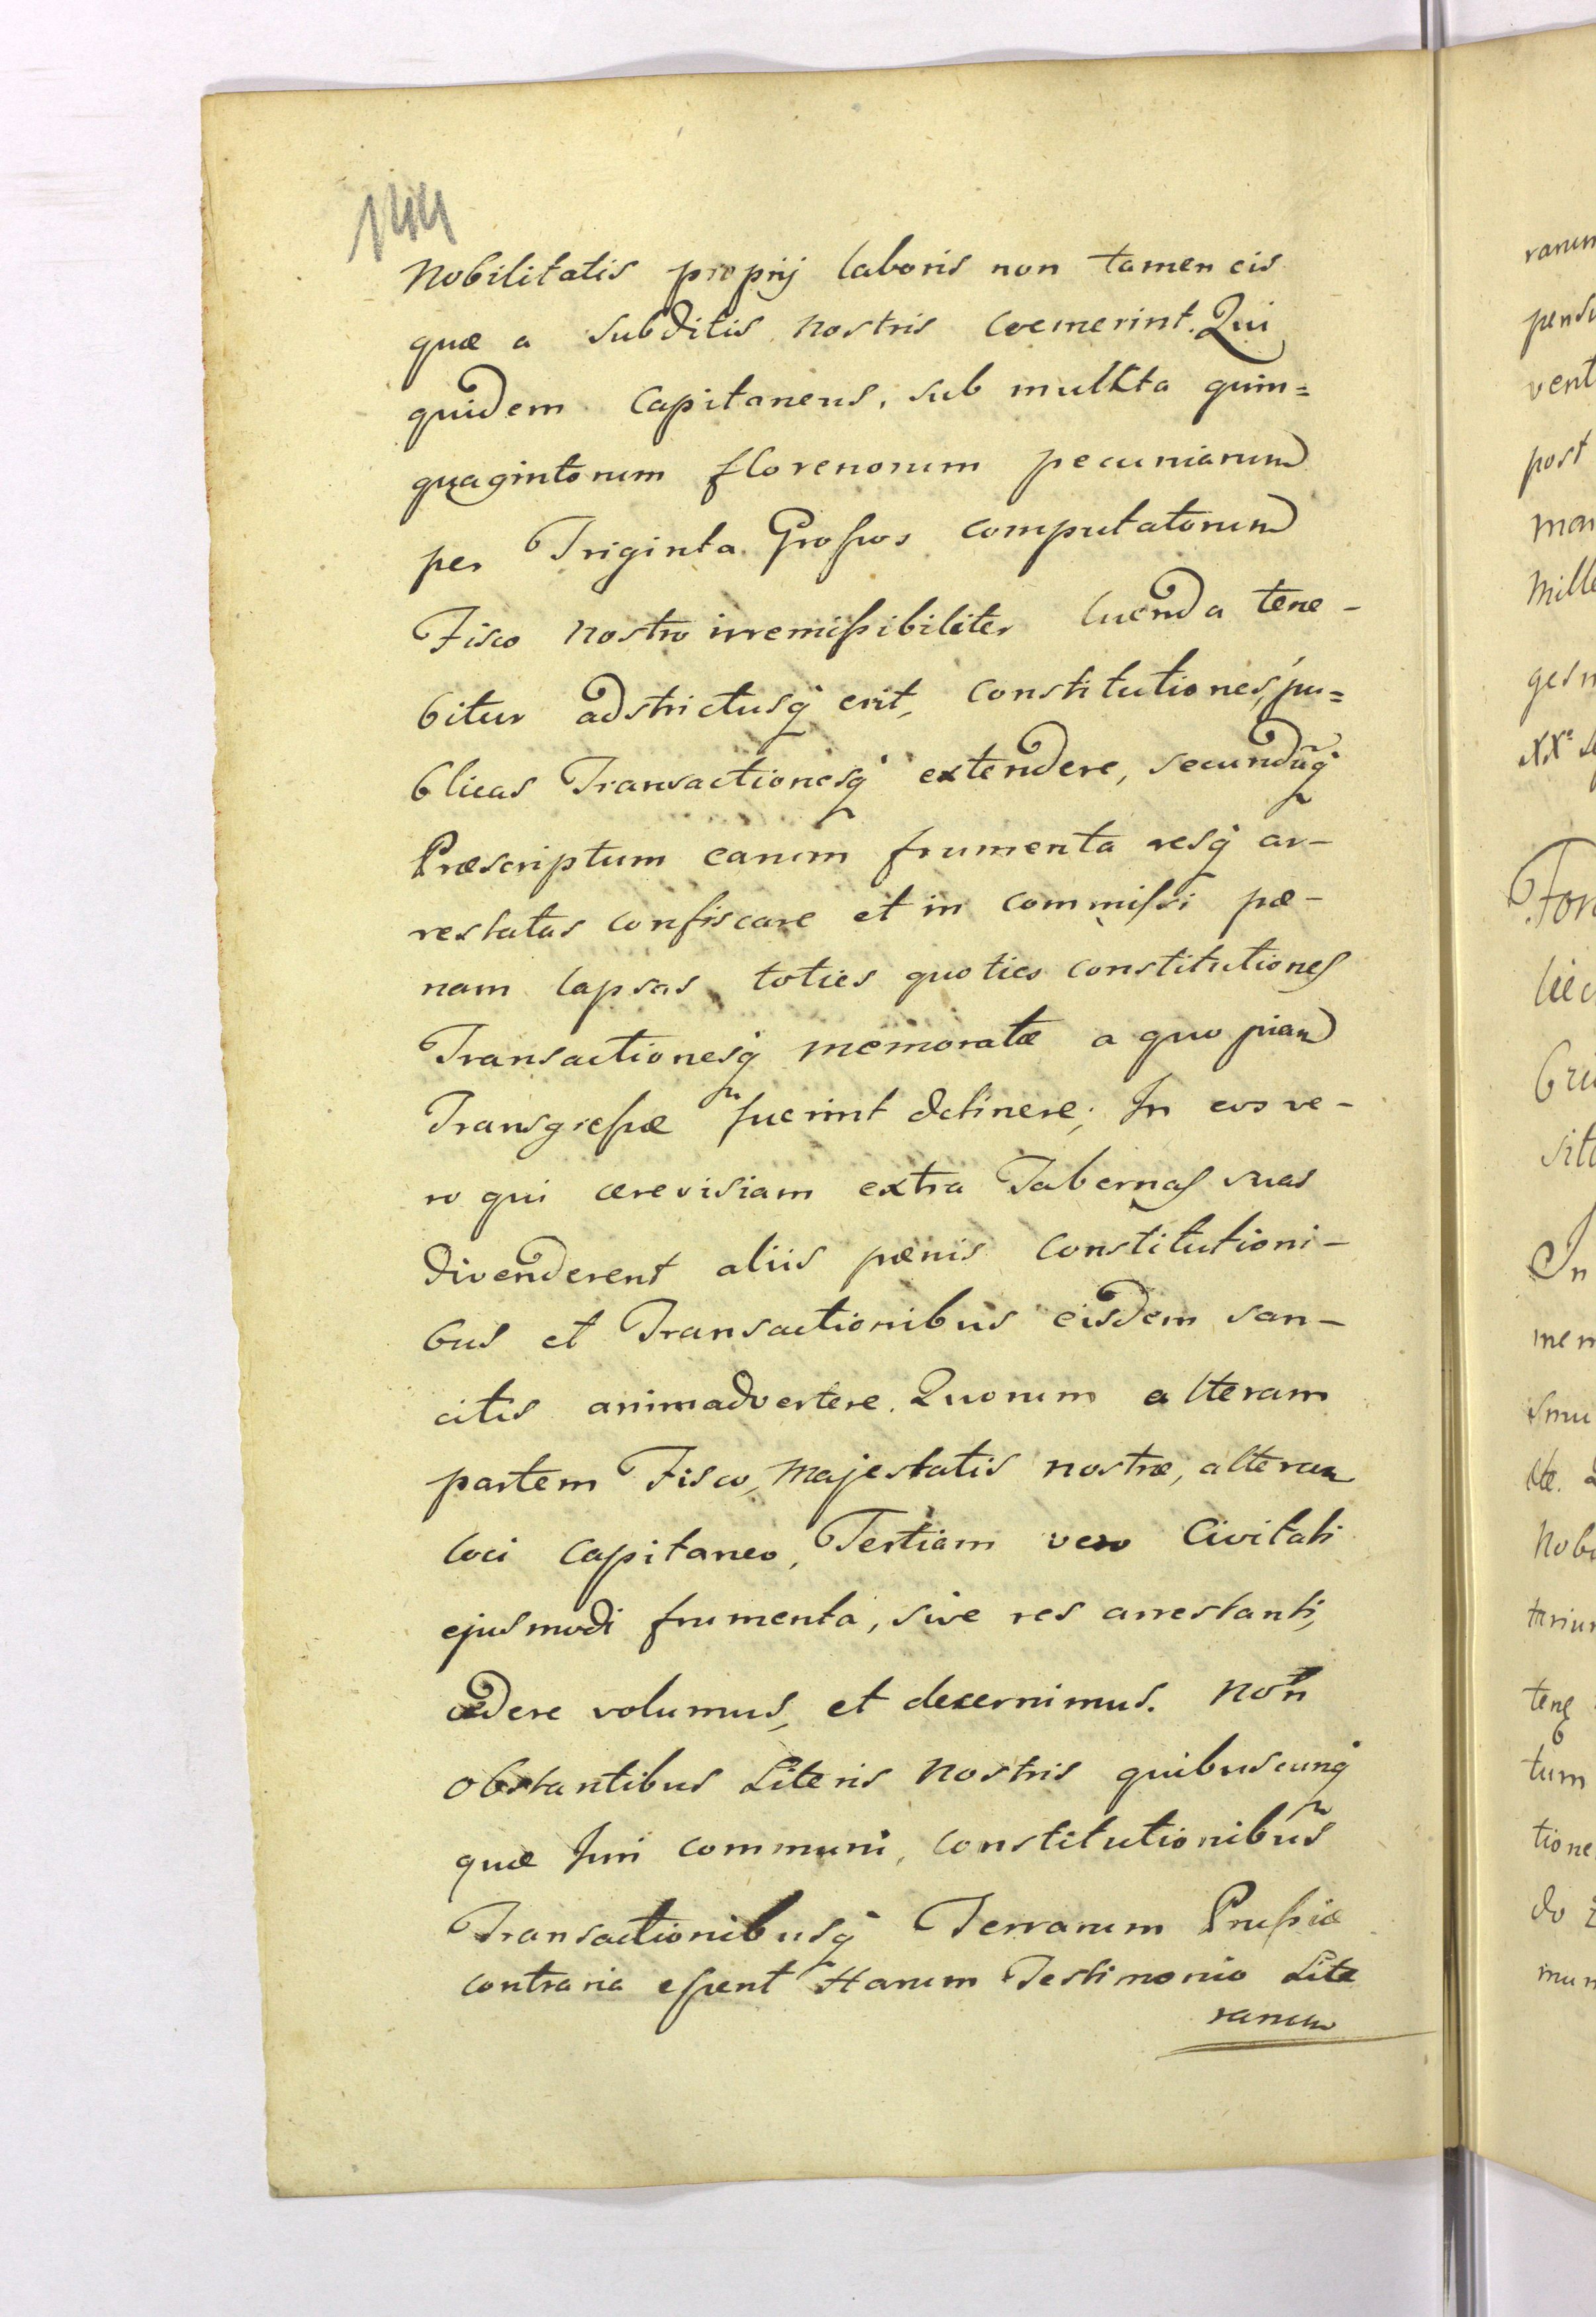 144
Nobilitatis proprij laboris non tamen eis
quæ a subditis nostris coemerint. Qui
quidem Capitaneus, sub mulkta quin=
quagintorum florenorum pecuniarum
per Triginta Grossos computatorum
Fisco nostro irremissibiliter luenda tene-
bitur adstrictusq erit, constitutiones, pu=
blicas Transactionesq extendere, secundũq
Præscriptum earum frumenta resq ar-
restatas confiscare et in commissi pæ-
nam lapsas toties quoties constitutiones
Transactionesq memoratæ a quopiam
Transgressæ fuerint detinere; In eos ve-
ro qui cerevisiam extra Tabernas suas
divenderent aliis pænis Constitutioni-
bus et Transactionibus eisdem san-
citis animadvertere. Quorum alteram
partem Fisco, Majestatis nostræ, alteram
loci Capitaneo, Tertiam vero Civitati
ejusmodi frumenta, sive res arrestanti,
cedere volumus, et decernimus. Non
obstantibus Literis Nostris quibuscunq
quæ Juri communi, constitutionibus
Transactionibusq Terrarum Prussiæ
contraria essent Harum Testimonio Lite
rarum
rarum
pensi
vent
post
mar
Mille
gesn
Ford
liec
bru
sit
In
mem
smu
Nob
tariur
tenq
tum
tione
do
mun